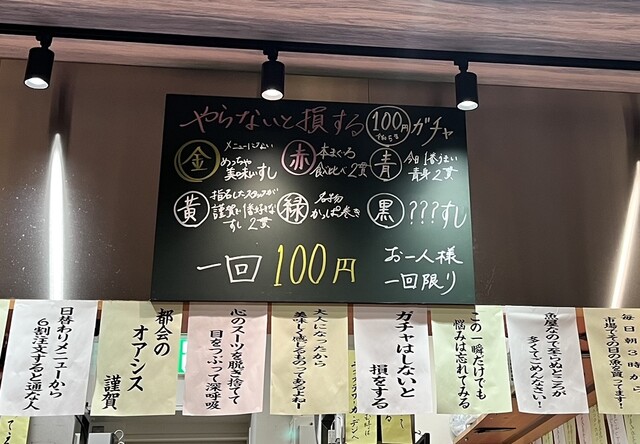 やらないと損する 100円 ガチャ
金 メニューにない
めっちゃ
美味いすし
赤 本まぐろ
食べ比べ 2貫
青 今日1番うまい
青身 2貫
黄 指名したスタッフが
謹賀で1番好きな
すし 2貫
緑 名物
かっぱ巻き
黒 ???すし
一回 100円
お一人様
一回限り
日替わりメニューから
6割注文すると通な人
都会の
オアシス
謹賀
心のスーツを脱ぎ捨てて
目をつぶって深呼吸
大人になったから
美味しく感じるものってあるよねー
ガチャはしないと
損をする
この一瞬だけでも
悩みは忘れてみる
魚屋なので全てぬどころが
多くてごめんなさい!
毎日朝3時から
市場でその日の魚を買ってます!